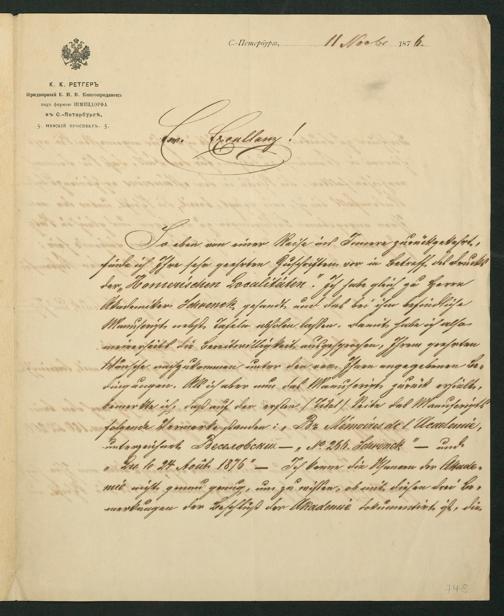 С.-Петербургъ, 11 Novbr 1876.
К. К. РЕТГЕРЪ
Придворный Е. И. В. Книгопродавецъ
подъ фирмою ШМИЦДОРФА
въ С.-Петербургѣ,
5. НЕВСКІЙ ПРОСПЕКТЪ. 5.
Ew. Excellenz!
So eben von einer Reise ins Innere zurückgekehrt,
finde ich Ihre sehr geehrten Zuschriften vor in Betreff des Drucks
der „Homerischen Localitäten". Ich habe gleich zu Herrn
Akademiker Schrenck gesandt, und das bei ihm befindliche
Manuscript nebst Tafeln abholen lassen. Damit habe ich also
meinerseits die Bereitwilligkeit ausgesprochen, Ihrem geehrten
Wunsche nachzukommen unter den von Ihnen angegebenen Be-
dingungen. Als ich aber nun das Manuscript zurück erhalte,
bemerkte ich, daß auf der ersten (Titel) Seite des Manuscripts
folgende Vermerke standen: „Mémoires de l'Académie,
unterzeichnet Веселовскій — „№ 266. Schrenck" — und
24 Août 1876" — Ich kenne die Usancen der Akade-
mie nicht genau genug, um zu wissen, ob mit diesen drei Be-
merkungen der Beschluß der Akademie dokumentirt ist, die
748